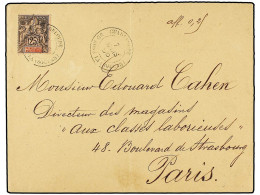 aff 0,25
25
Monsieur Edouard Cahen
Directeur des magasins
"aux classes laborieuses"
48. Boulevard de Strasbourg
Paris.